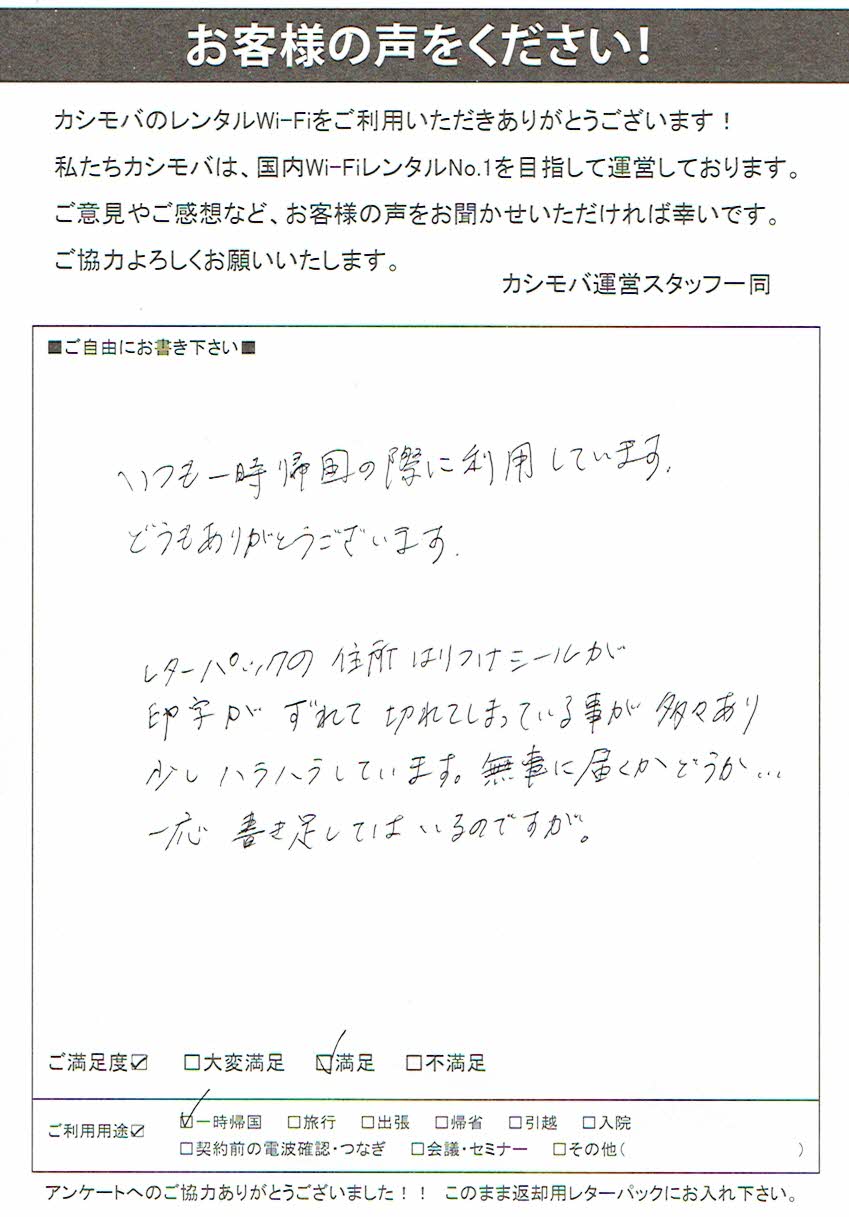 お客様の声をください!
カシモバのレンタルWi-Fiをご利用いただきありがとうございます！
私たちカシモバは、国内Wi-FiレンタルNo.1を目指して運営しております。
ご意見やご感想など、お客様の声をお聞かせいただければ幸いです。
ご協力よろしくお願いいたします。
カシモバ運営スタッフ一同
■ご自由にお書き下さい■
いつも一時帰国の際に利用しています.
どうもありがとうございます.
レターパックの住所はりつけシールが
印字がずれて切れてしまっている事が多々あり
少しハラハラしています。無事に届くかどうか…
一応書き足してはいるのですが。
ご満足度☑ □大変満足 ☑満足 □不満足
ご利用用途☑ ☑一時帰国 □旅行 □出張 □帰省 □引越 □入院
□契約前の電波確認・つなぎ □会議・セミナー □その他( )
アンケートへのご協力ありがとうございました！！ このまま返却用レターパックにお入れ下さい。